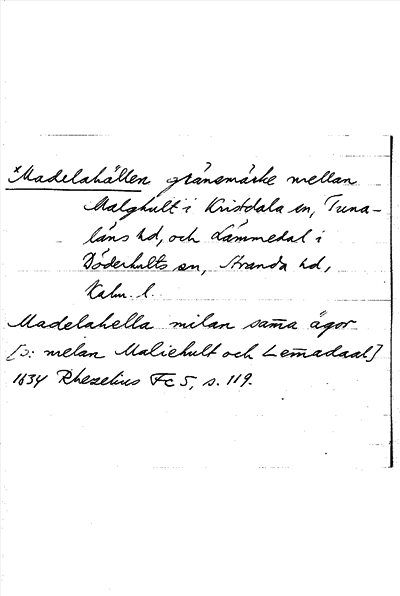 *Madelahällen gränsmärke mellan
Malghult i Kristdala sn, Tuna-
läns hd, och Lämmedal i
Döderhults sn, Stranda hd,
Kalm. l.
Madelahella milan sam̄a ägor
[ɔ: melan Maliehult och Lem̄adaal]
1634 Rhezelius Fc 5, s. 119.